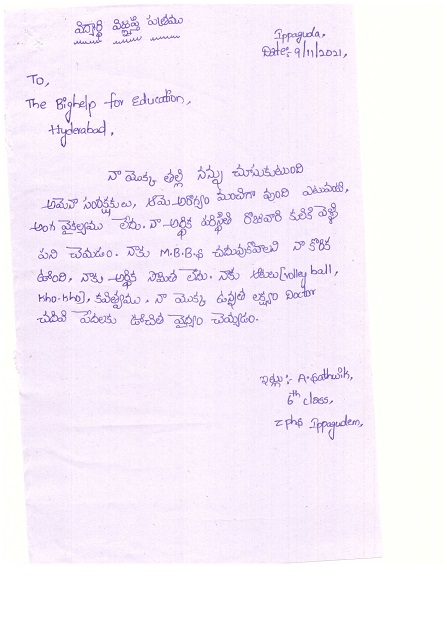 విద్యార్థి విజ్ఞప్తి పత్రము
Ippaguda,
Date:- 9/11/2021,
To,
The Bighelp for Education,
Hyderabad,
నా మొక్క తల్లి నన్ను చూసుకుంటుంది
ఆమెనా సంరక్షకులు, ఆమె ఆరోగ్యం మంచిగా వుంది ఎటువంటి,
అంగ వైకల్యము లేదు. నా ఆర్థిక పరిస్థితి రోజువారి కూలికి వెళ్ళి
పని చేయడం. నాకు M.B.B.S చదువుకోవాలని నా కోరిక
ఉంది, నాకు ఆర్థిక స్తోమత లేదు. నాకు ఆటలు [volley ball,
kho-kho], కవిత్వము. నా మొక్క ఉన్నత లక్ష్యం Doctor
చదివి పేదలకు ఉచిత వైద్యం చెయ్యడం.
ఇట్లు:- A.Sathwik,
6th class,
zphs Ippagudem,